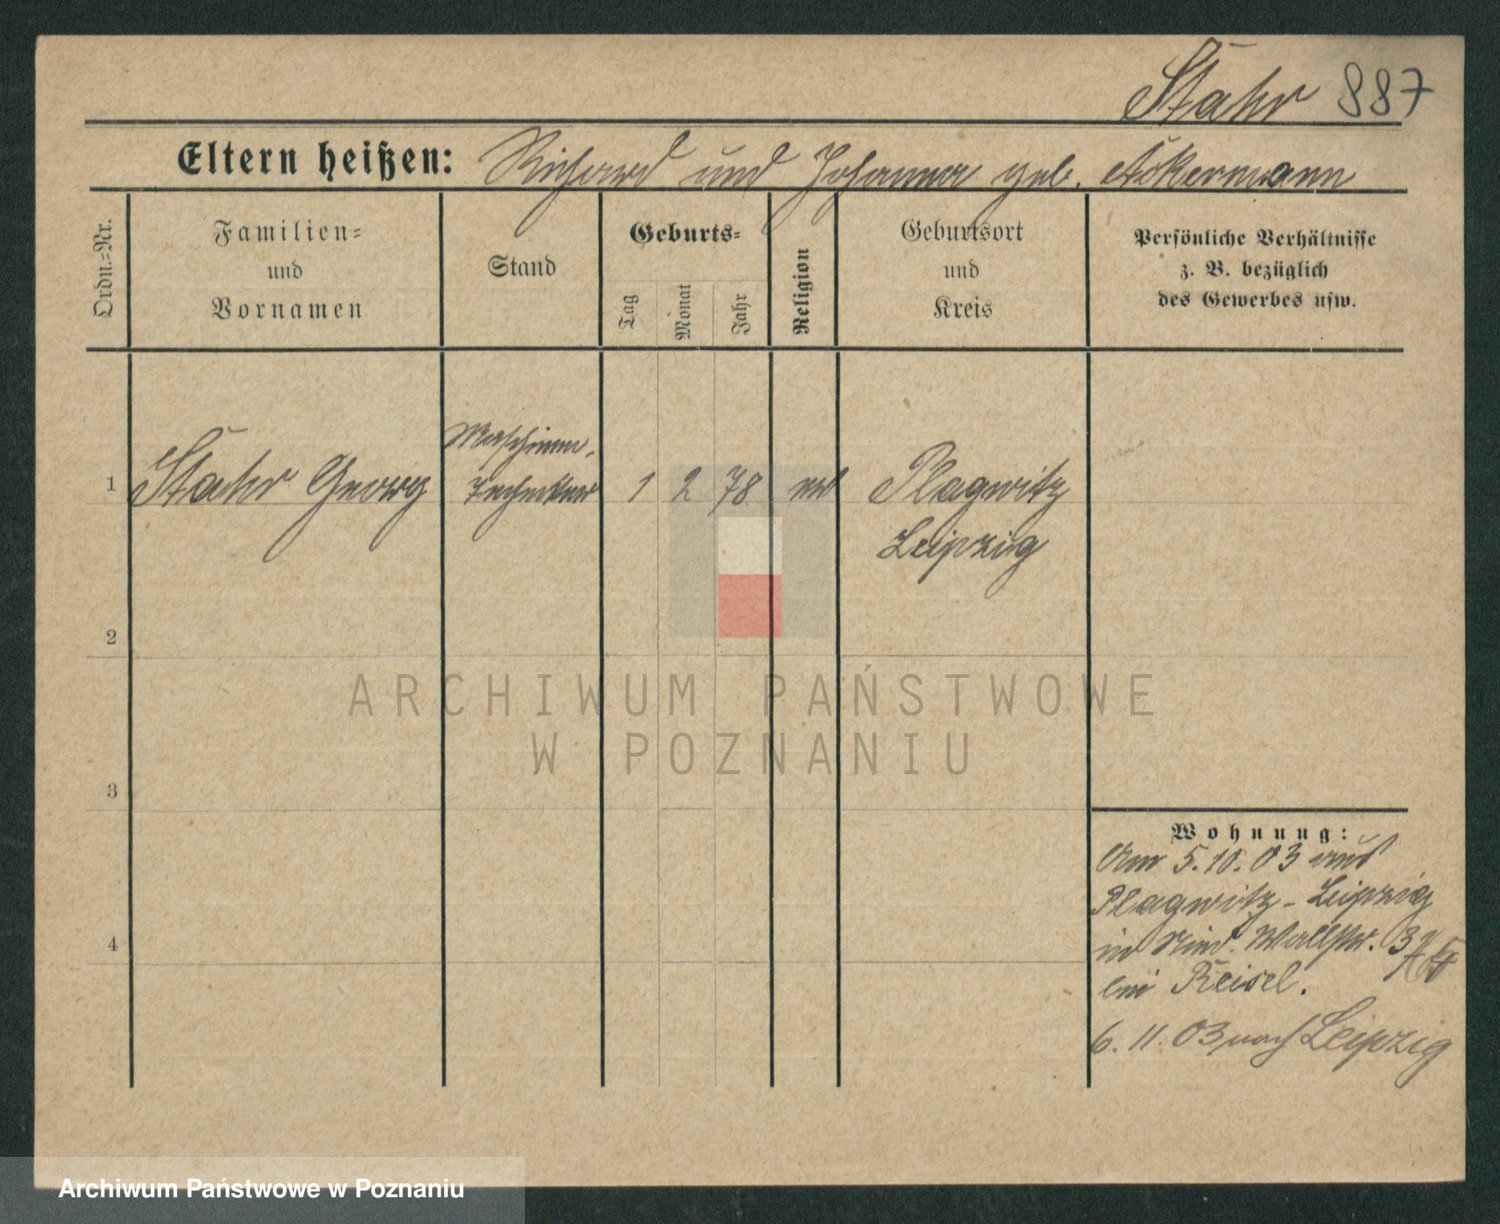 Stahr 887
Eltern heißen: Richard und Johanna geb. Ackermann
Ordn.-Nr.
Familien-
und
Vornamen
Stand
Geburts-
Tag
Monat
Jahr
Religion
Geburtsort
und
Kreis
Persönliche Verhältnisse
z. B. bezüglich
des Gewerbes usw.
Maschinen-
1 Stahr Georg Techniker 1 2 78 ev Plagwitz
Leipzig
2
3
4
ARCHIWUM PAŃSTWOWE
W POZNANIU
Wohnung:
Am 5.10.03 aus
Plagwitz-Leipzig
in Wallstr.
bei Reisel.
6.11.03 nach Leipzig
Archiwum Państwowe w Poznaniu